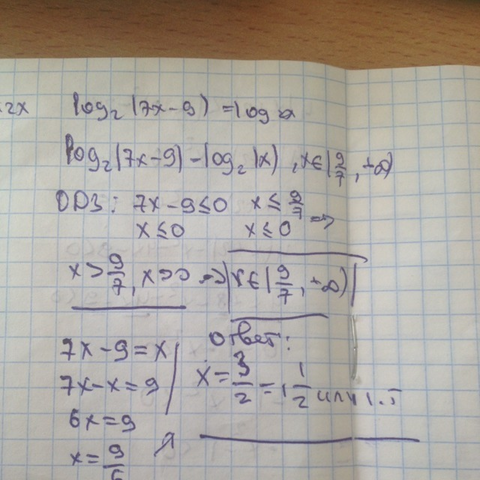 2x log₂(7x-9) = log x
log₂(7x-9) - log₂(x), x∈(9/7, +∞)
ОДЗ: 7x-9≤0 x≤9/7 ⇒
x≤0 x≤0
x>9/7, x>0 ⇒ x∈(9/7, +∞)
7x-9=x
7x-x=9
6x=9
x=9/6
Ответ:
x=3/2=1 1/2 или 1.5